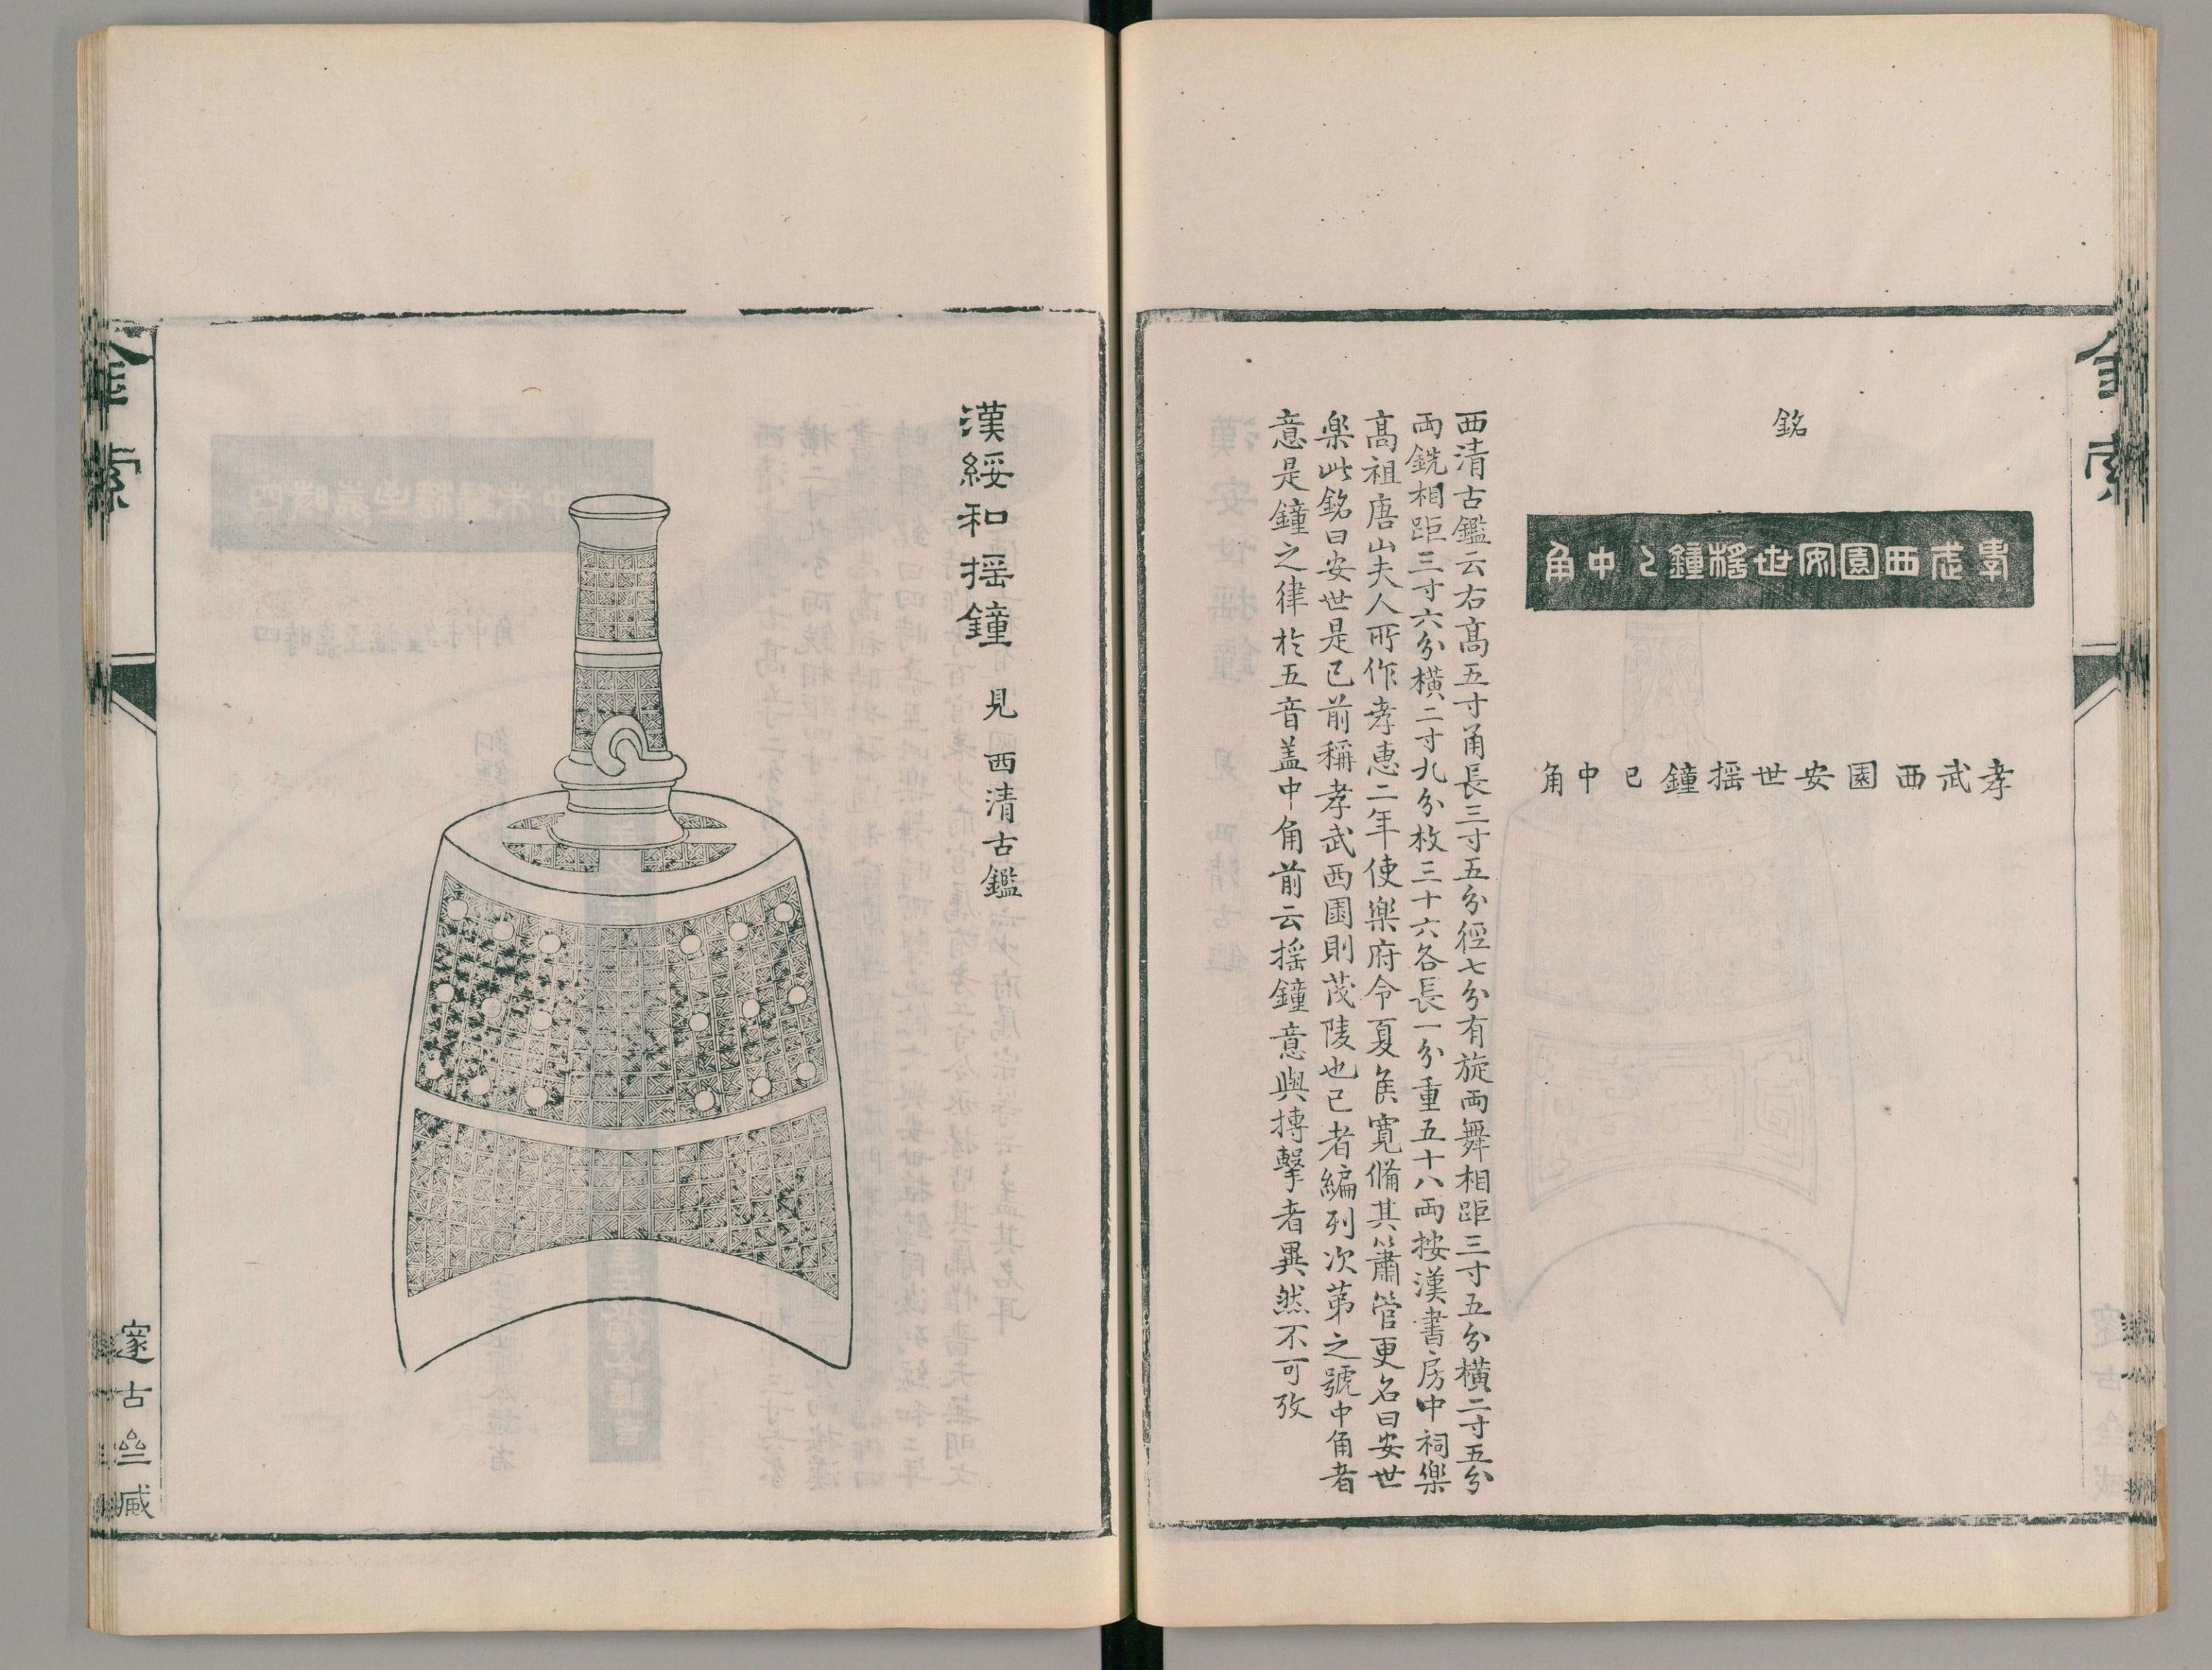 金索
銘
孝武西園安世揺鐘已中角
孝武西園安世揺鐘已中角
西清古鑑云右髙五寸甬長三寸五分徑七分有旋両舞相距三寸五分横二寸五分
両銑相距三寸六分横二寸九分枚三十六各長一分重五十八両按漢書房中祠樂
髙祖唐山夫人所作孝惠二年使樂府令夏矦寛僃其簫管更名曰安世
楽此銘曰安世是已前稱孝武西園則茂陵也已者編列次苐之號中角者
意是鐘之律於五音盖中角前云揺鐘意與摶擊者異然不可攷
漢綏和揺鐘 見西清古鑑
金索
邃古亝臧